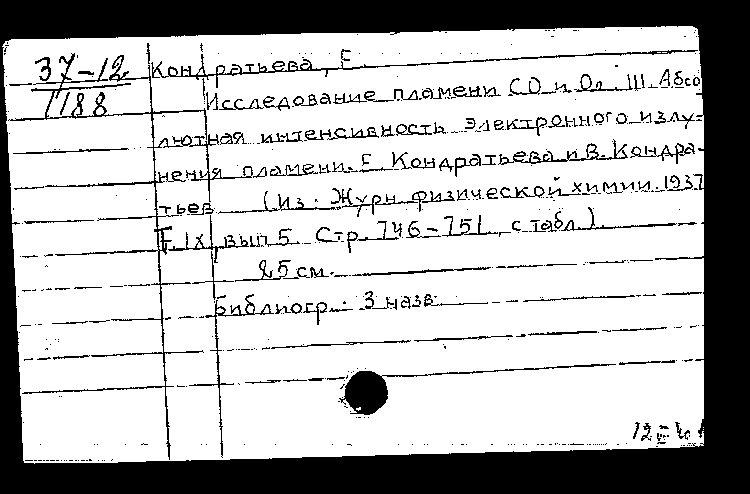 37-12
1188
Кондратьева, Е.
Исследование пламени CO и O₂. III. Абсо
лютная интенсивность электронного излу-
чения пламени. Е. Кондратьева и В. Кондра-
тьев (Из: Журн. физической химии. 1937
Т. IX, вып 5. Стр. 746-751, с табл.).
25 см.
Библиогр.: 3 назв.
12